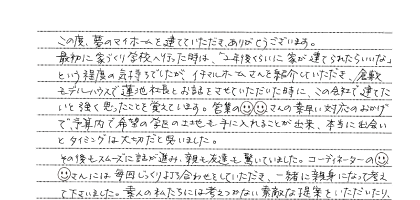 この度、夢のマイホームを建てていただき、ありがとうございます。
最初に家づくり学校へ行った時は、「2年後くらいに家が建てられたらいいな」
という程度の気持ちでしたが、イチマルホームさんを紹介していただき、倉敷
モデルハウスで蓮池社長とお話をさせていただいた時に、この会社で建てた
いと強く思ったことを覚えています。営業の さんの素早い対応のおかげ
で予算内で希望の学区の土地も手に入れることが出来、本当に出会い
とタイミングは大切だと思いました。
その後もスムーズに話が進み、親も友達も驚いていました。コーディネーターの
さんには毎回じっくり打ち合わせをしていただき、一緒に親身になって考え
て下さいました。素人の私たちには考えつかない素敵な提案をいただいたり、